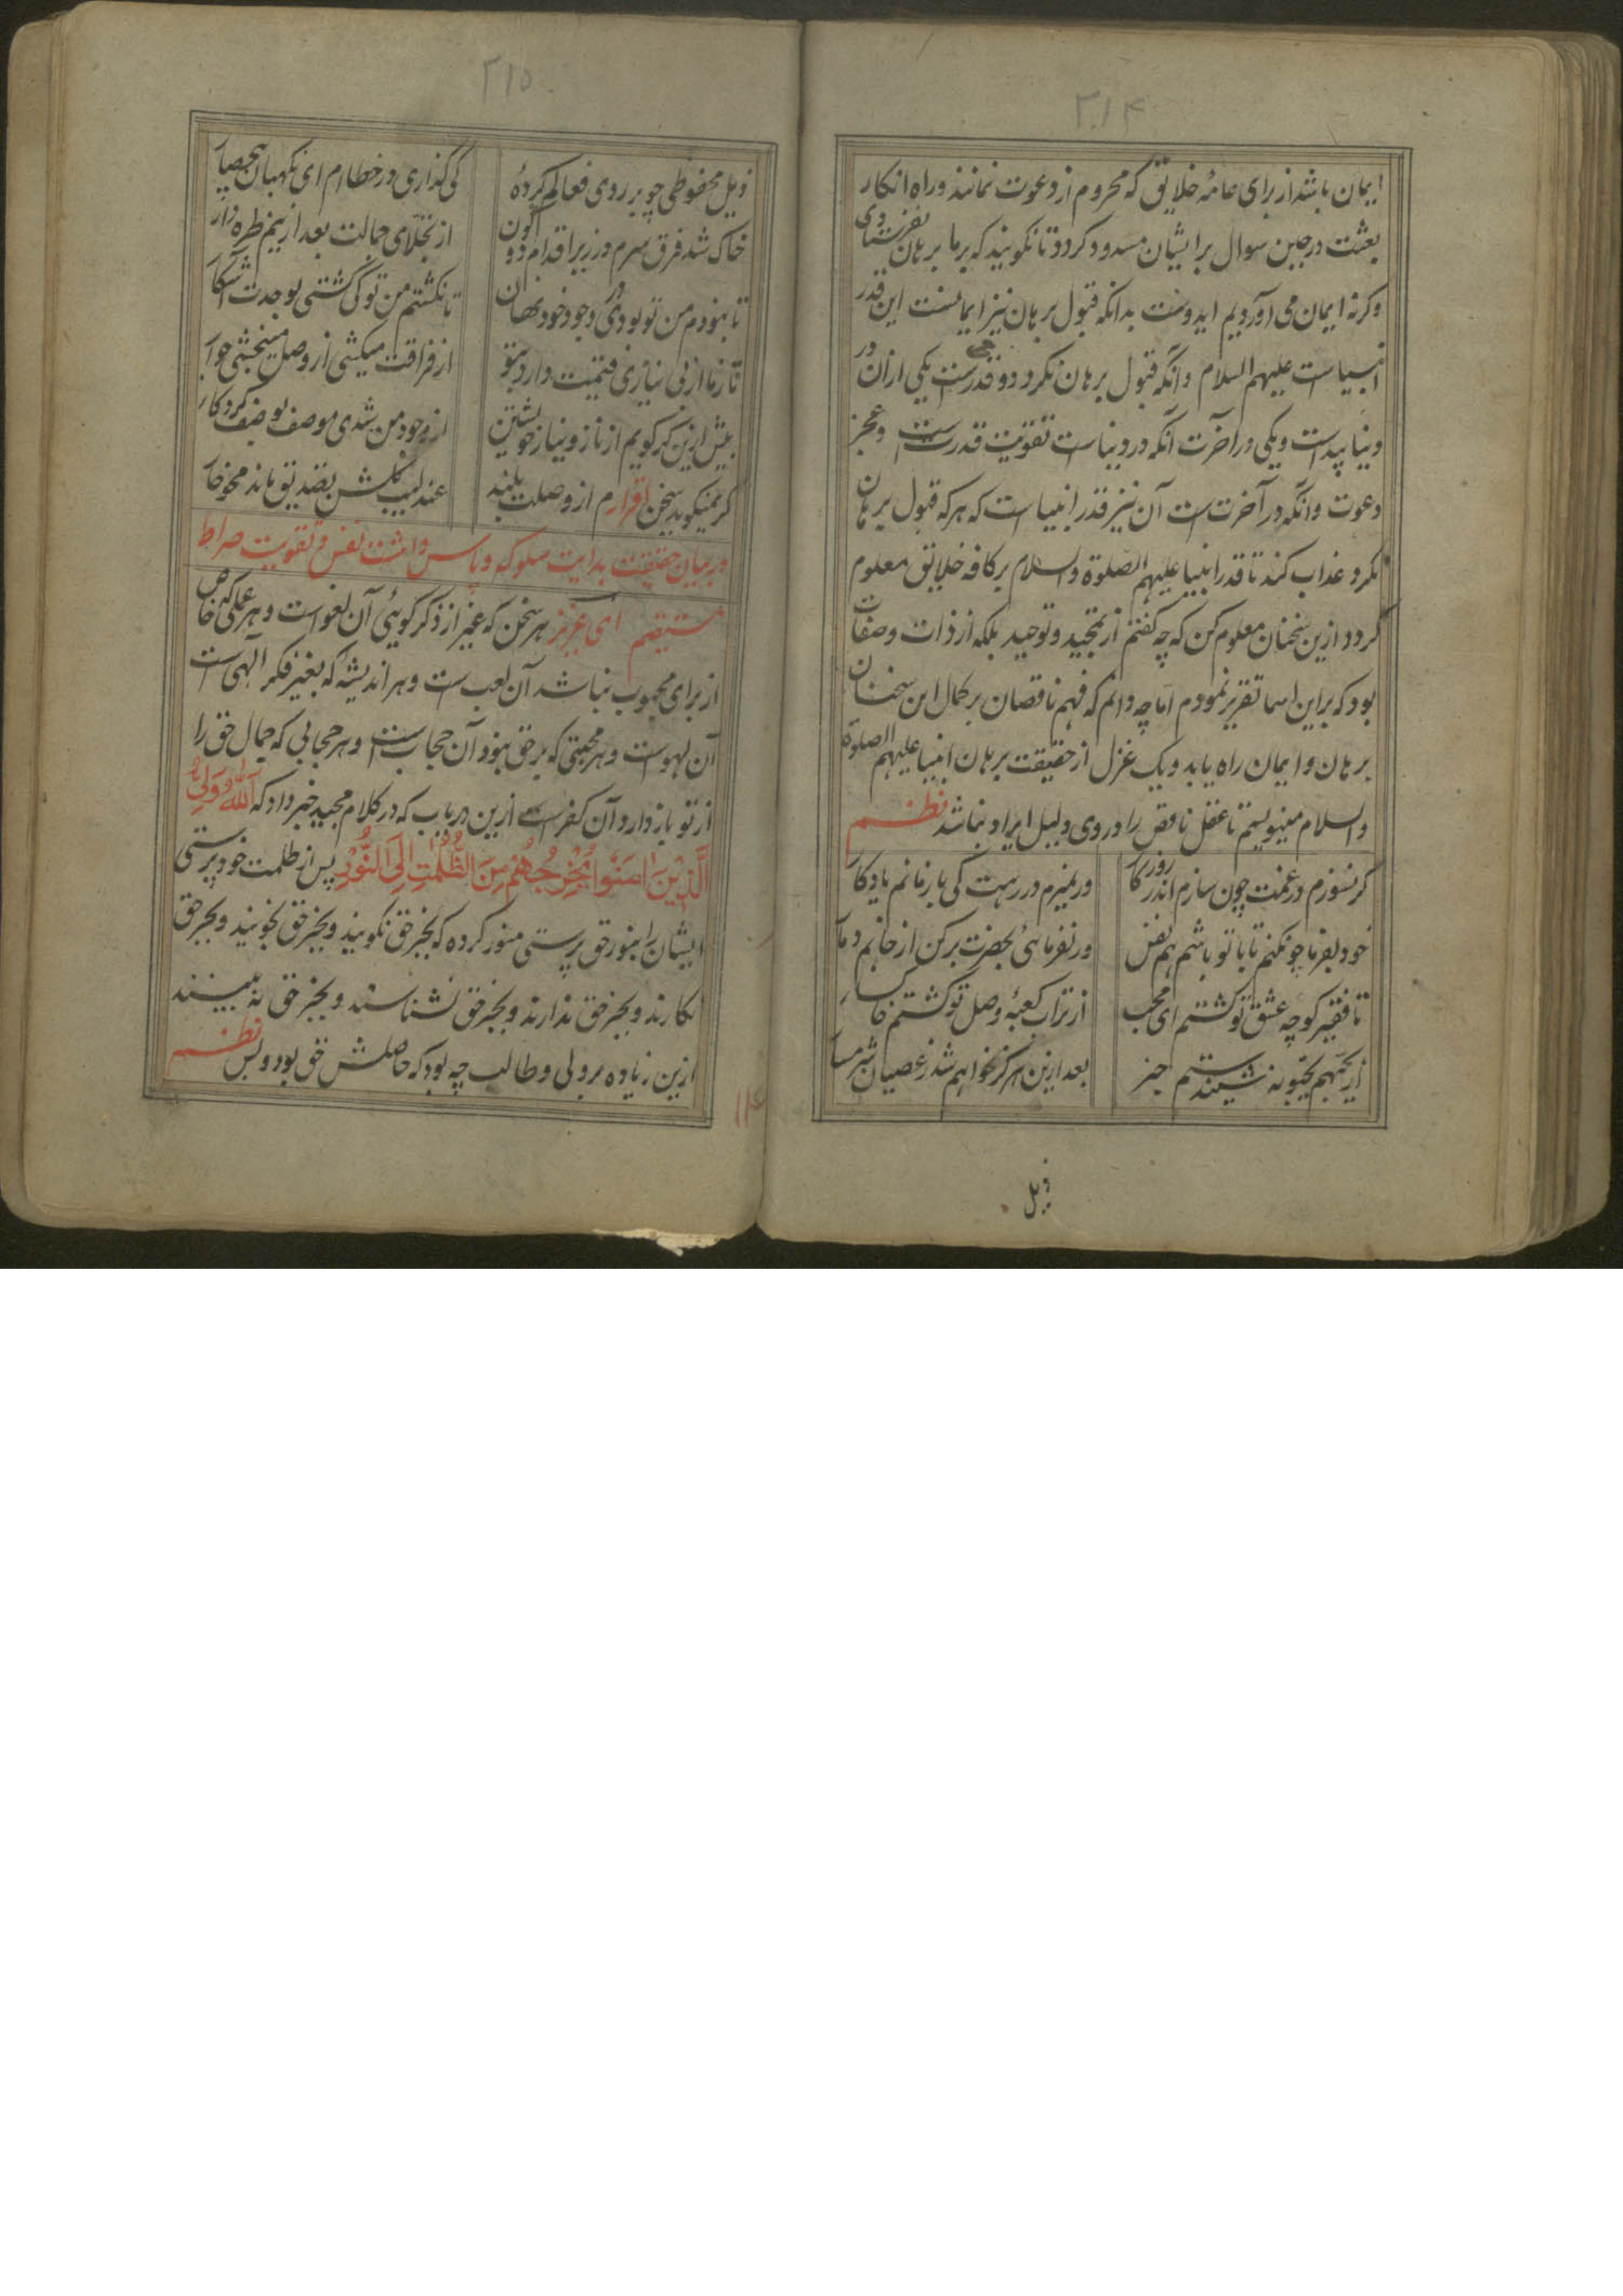 ۳۱۴
ایمان باشد از برای عامهٔ خلایق که محروم از دعوت نمانند و راه انکار
بعثت در حین سوال بر ایشان مسدود گردد تا نگویند که بر ما برهان نفرستادی
وگرنه ایمان می آوردیم ایدوست بدانکه قبول برهان نیز ایمانست این قدر
انبیاست علیهم السلام و آنکه قبول برهان نکرد دو قدرست یکی ازان در
دنیا پیداست و یکی در آخرت آنکه در دنیاست تقویت قدرتست و عجز
دعوت و آنکه در آخرتست آن نیز قدر انبیاست که هر که قبول برهان
نکرد عذاب کند تا قدر انبیا علیهم الصلوة والسلام بر کافه خلایق معلوم
گردد ازین سخنان معلوم کن که چه گفتم از تمجید و توحید بلکه از ذات و صفات
بود که براین اسما تقریر نمودم اما چه دانم که فهم ناقصان بر کمال این سخنان
برهان و ایمان راه یابد و یک غزل از حقیقت برهان انبیا علیهم الصلوة
والسلام مینویسم تا عقل ناقص را در وی دلیل ایراد نباشد نظم
گر نسوزم در غمت چون سازم اندر روزگار ور نمیرم در رهت کی باز مانم یادگار
خود بفرما چو نکنم تا با تو باشم هم نفس ور نفرمائی بحضرت برکن از جانم دمار
تا فقیر کوچه عشق تو گشتم ای محب از تراب کعبهٔ وصل تو گشتم خاکسار
بعد ازین هرگز نخواهم شد ز عصیان شرمسار
ذیل
۳۱۵
ذیل محفوظی چو بر روی فعالم کردهٔ کی گذاری در خطاام ای نگهبان
خاک شد فرق سرم در زیر اقدام دو کون از تجلای جمالت بعد ازینم طره وار
تا نبودم من تو بودی در وجود خود نهان تا نگشتم من تو کی گشتی بوحدت آشکار
تا ز ما از بی نیازی قیمت دارد بتو از فراقت میکشی از وصل میبخشی
بیش ازین گر گویم از ناز و نیاز خویشتن از وجود من شدی موصف بوصف کردگار
گر نمیگوید سخن اقرارم از وصلت بلند عندلیب گلشن تصدیق ماند
در بیان حقیقت بدایت سلوکه و پاس داشت نفس و تقویت صراط
مستقیم ای عزیز هر سخن که غیر از ذکر گوئی آن لغو است و هر عملی که خاص
از برای محبوب نباشد آن لعب ست و هر اندیشه که بغیر فکر الهی ست
آن لهوست و هر محبتی که بر حق نبود آن حجابست و هر حجابی که جمال حق را
از تو باز دارد آن کفرست ازین درباب که در کلام مجید خبر داد که اَللّٰهُ وَلِیُّ
الَّذِیْنَ اٰمَنُوا یُخْرِجُهُمْ مِنَ الظُّلُمٰتِ اِلَی النُّوْرِ پس از ظلمت خودپرستی
ایشان را بنور حق پرستی منور کرده که بجز حق نگویند و بجز حق نجویند و بجز حق
نکارند و بجز حق ندارند و بجز حق نشناسند و بجز حق نه بینند
ازین زیاده مر ولی و طالب چه بود که حاصلش حق بود و بس نظم